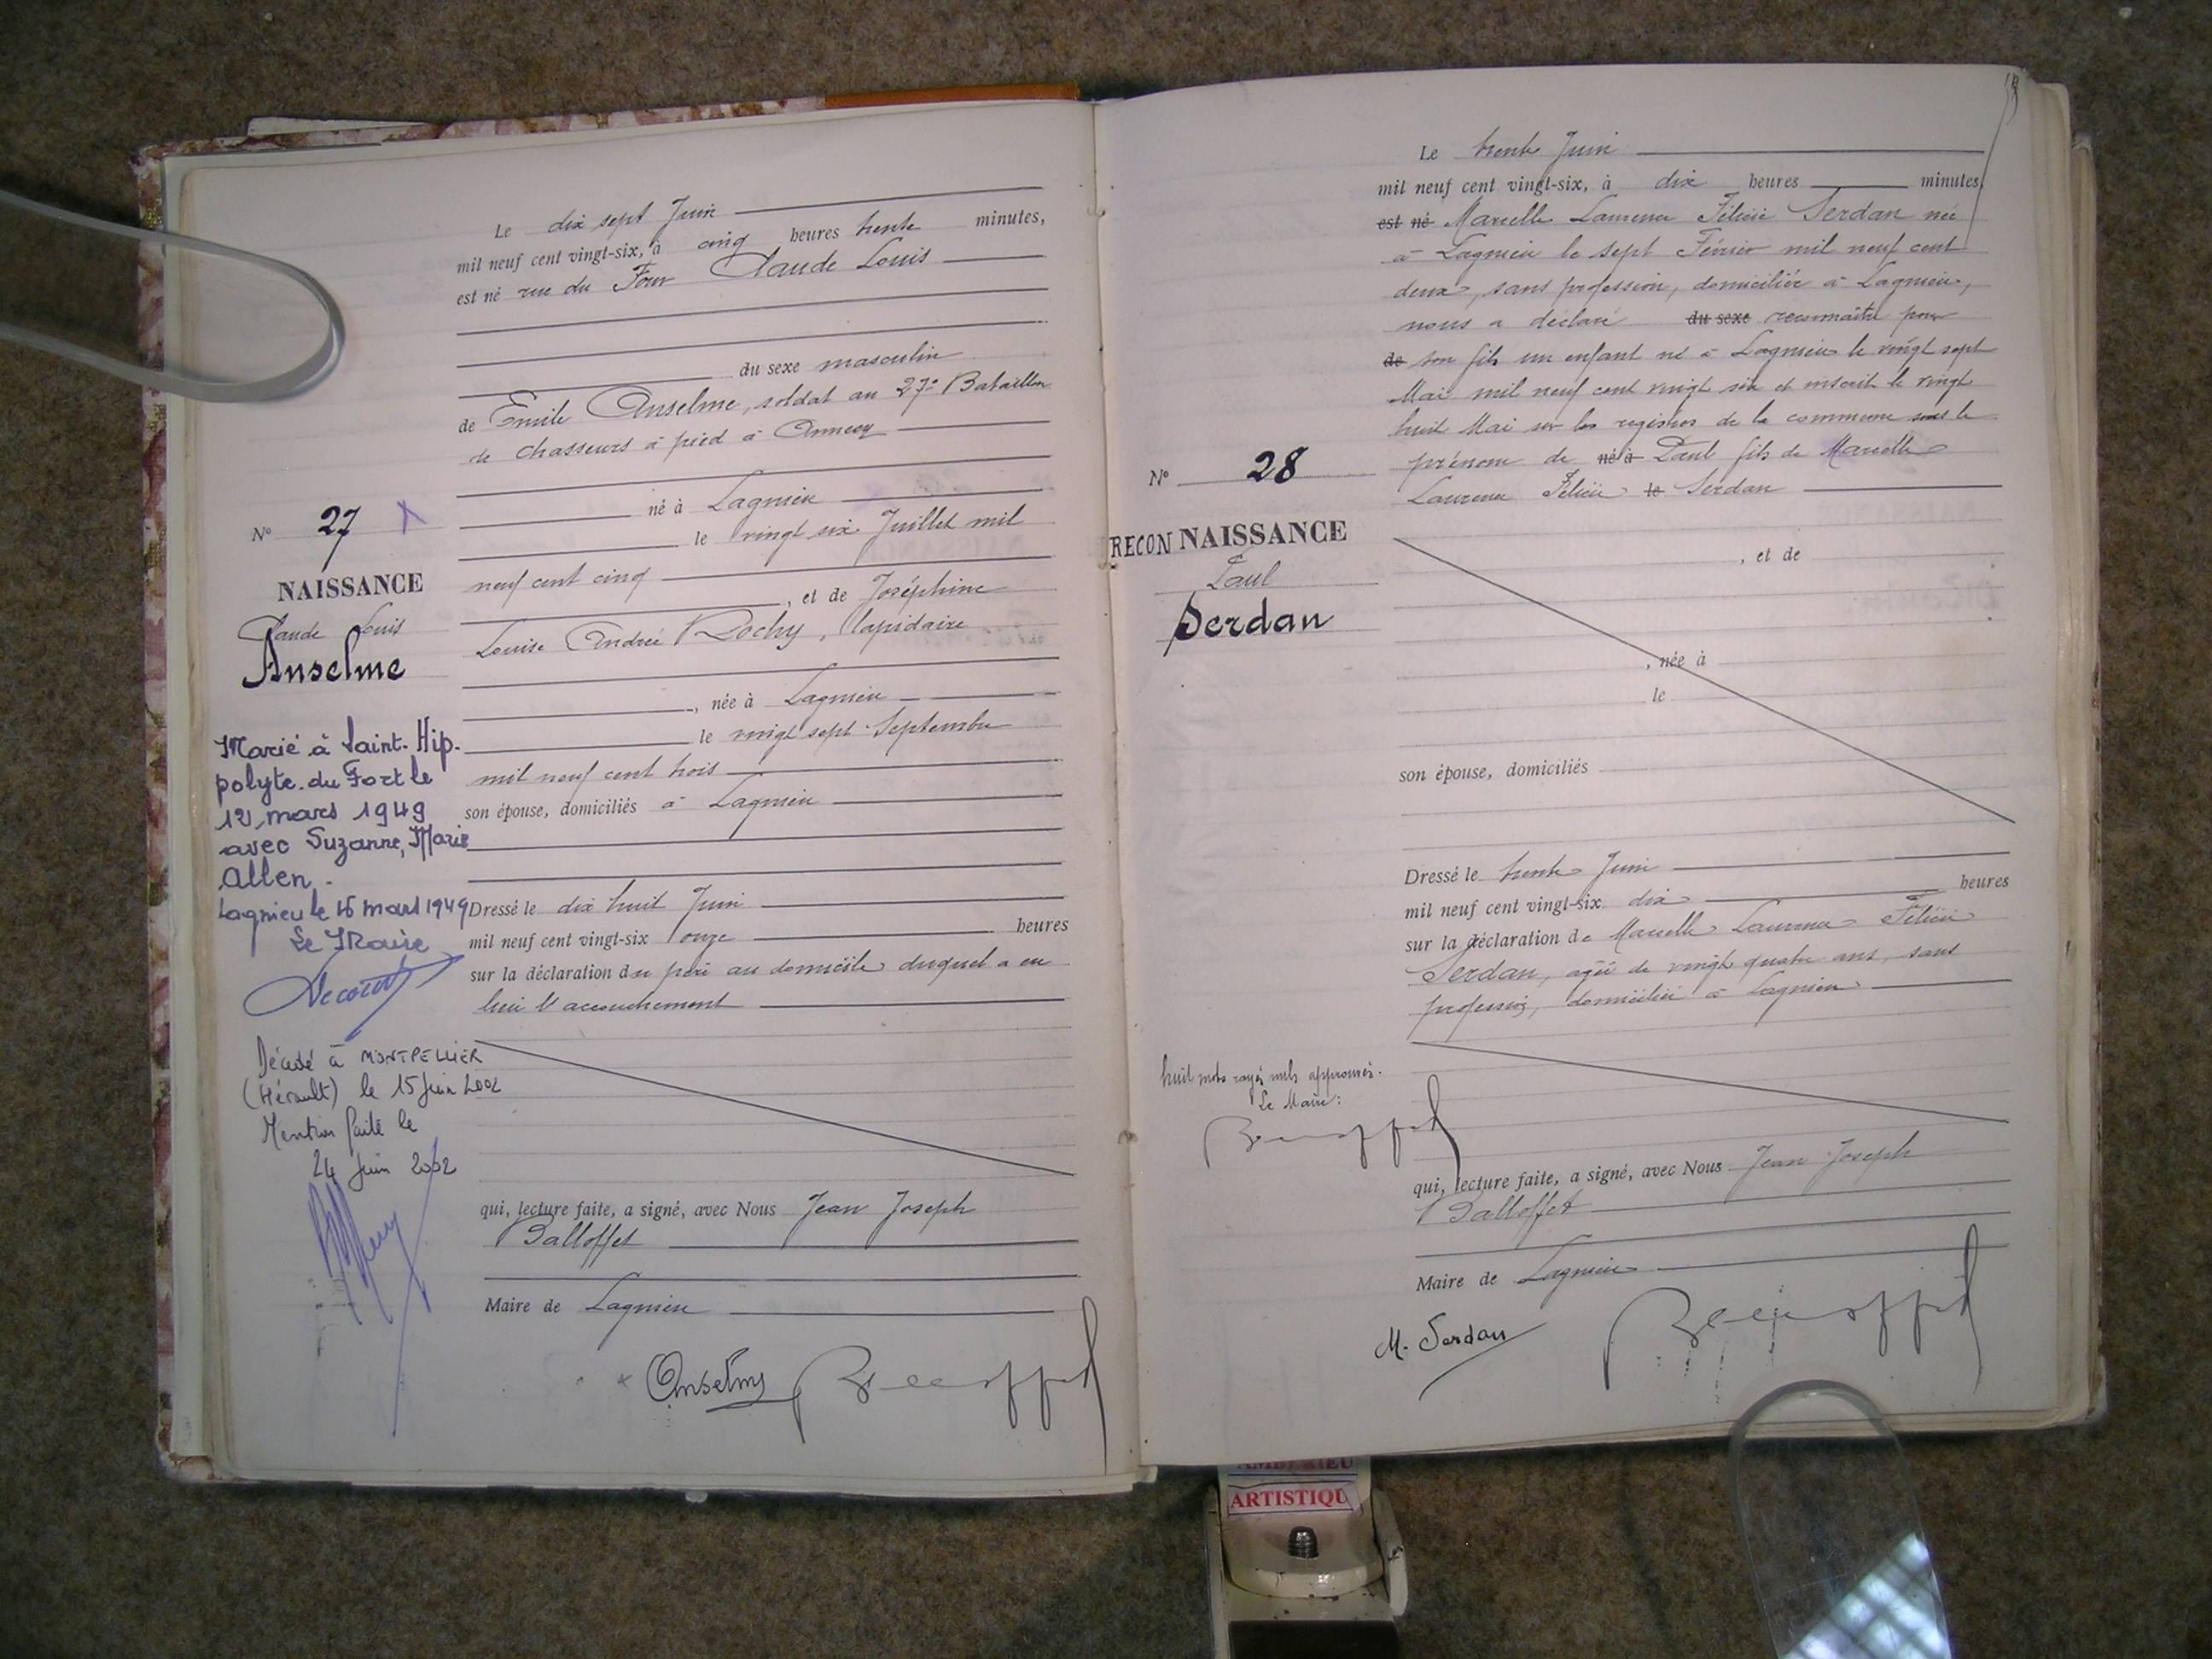 Le dix sept Juin
mil neuf cent vingt-six, à cinq heures trente minutes,
est né rue du Four Claude Louis
du sexe masculin
de Emile Anselme, soldat au 27e Bataillon
de chasseurs à pied à Annecy
né à Lagnieu
N° 27
le vingt six Juillet mil
NAISSANCE
neuf cent cinq
, et de Joséphine
Claude Louis
Anselme
Louise Andrée Rochy, lapidaire
, née à Lagnieu
le vingt sept Septembre
mil neuf cent trois
son épouse, domiciliés à Lagnieu
Marié à Saint-Hip-
polyte-du-Fort le
12 mars 1949
avec Suzanne, Marie
Allen.
Lagnieu le 16 mars 1949
Le Maire
Dressé le dix huit Juin
mil neuf cent vingt-six onze heures
sur la déclaration du père au domicile duquel a eu
lieu l'accouchement
Décédé à MONTPELLIER
(Hérault) le 15 Juin 2002
Mention faite le
24 Juin 2002
qui, lecture faite, a signé, avec Nous Jean Joseph
Balloffet
Maire de Lagnieu
Anselme
Le trente Juin
mil neuf cent vingt-six, à dix heures minutes,
est né Marcelle Laurence Félicie Serdan née
à Lagnieu le sept Février mil neuf cent
deux, sans profession, domiciliée à Lagnieu,
nous a déclaré du sexe reconnaître pour
de son fils un enfant né à Lagnieu le vingt sept
Mai mil neuf cent vingt six et inscrit le vingt
huit Mai sur les registres de la commune sous le
prénom de né à Paul fils de Marcelle
Laurence Félicie le Serdan
N° 28
RECONNAISSANCE
Paul
Serdan
, et de
, née à
le
son épouse, domiciliés
Dressé le trente Juin
mil neuf cent vingt-six dix heures
sur la déclaration de Marcelle Laurence Félicie
Serdan, agée de vingt quatre ans, sans
profession, domiciliée à Lagnieu
huit mots rayés nuls approuvés.
Le Maire:
qui, lecture faite, a signé, avec Nous Jean Joseph
Balloffet
Maire de Lagnieu
M. Serdan
ARTISTIQU